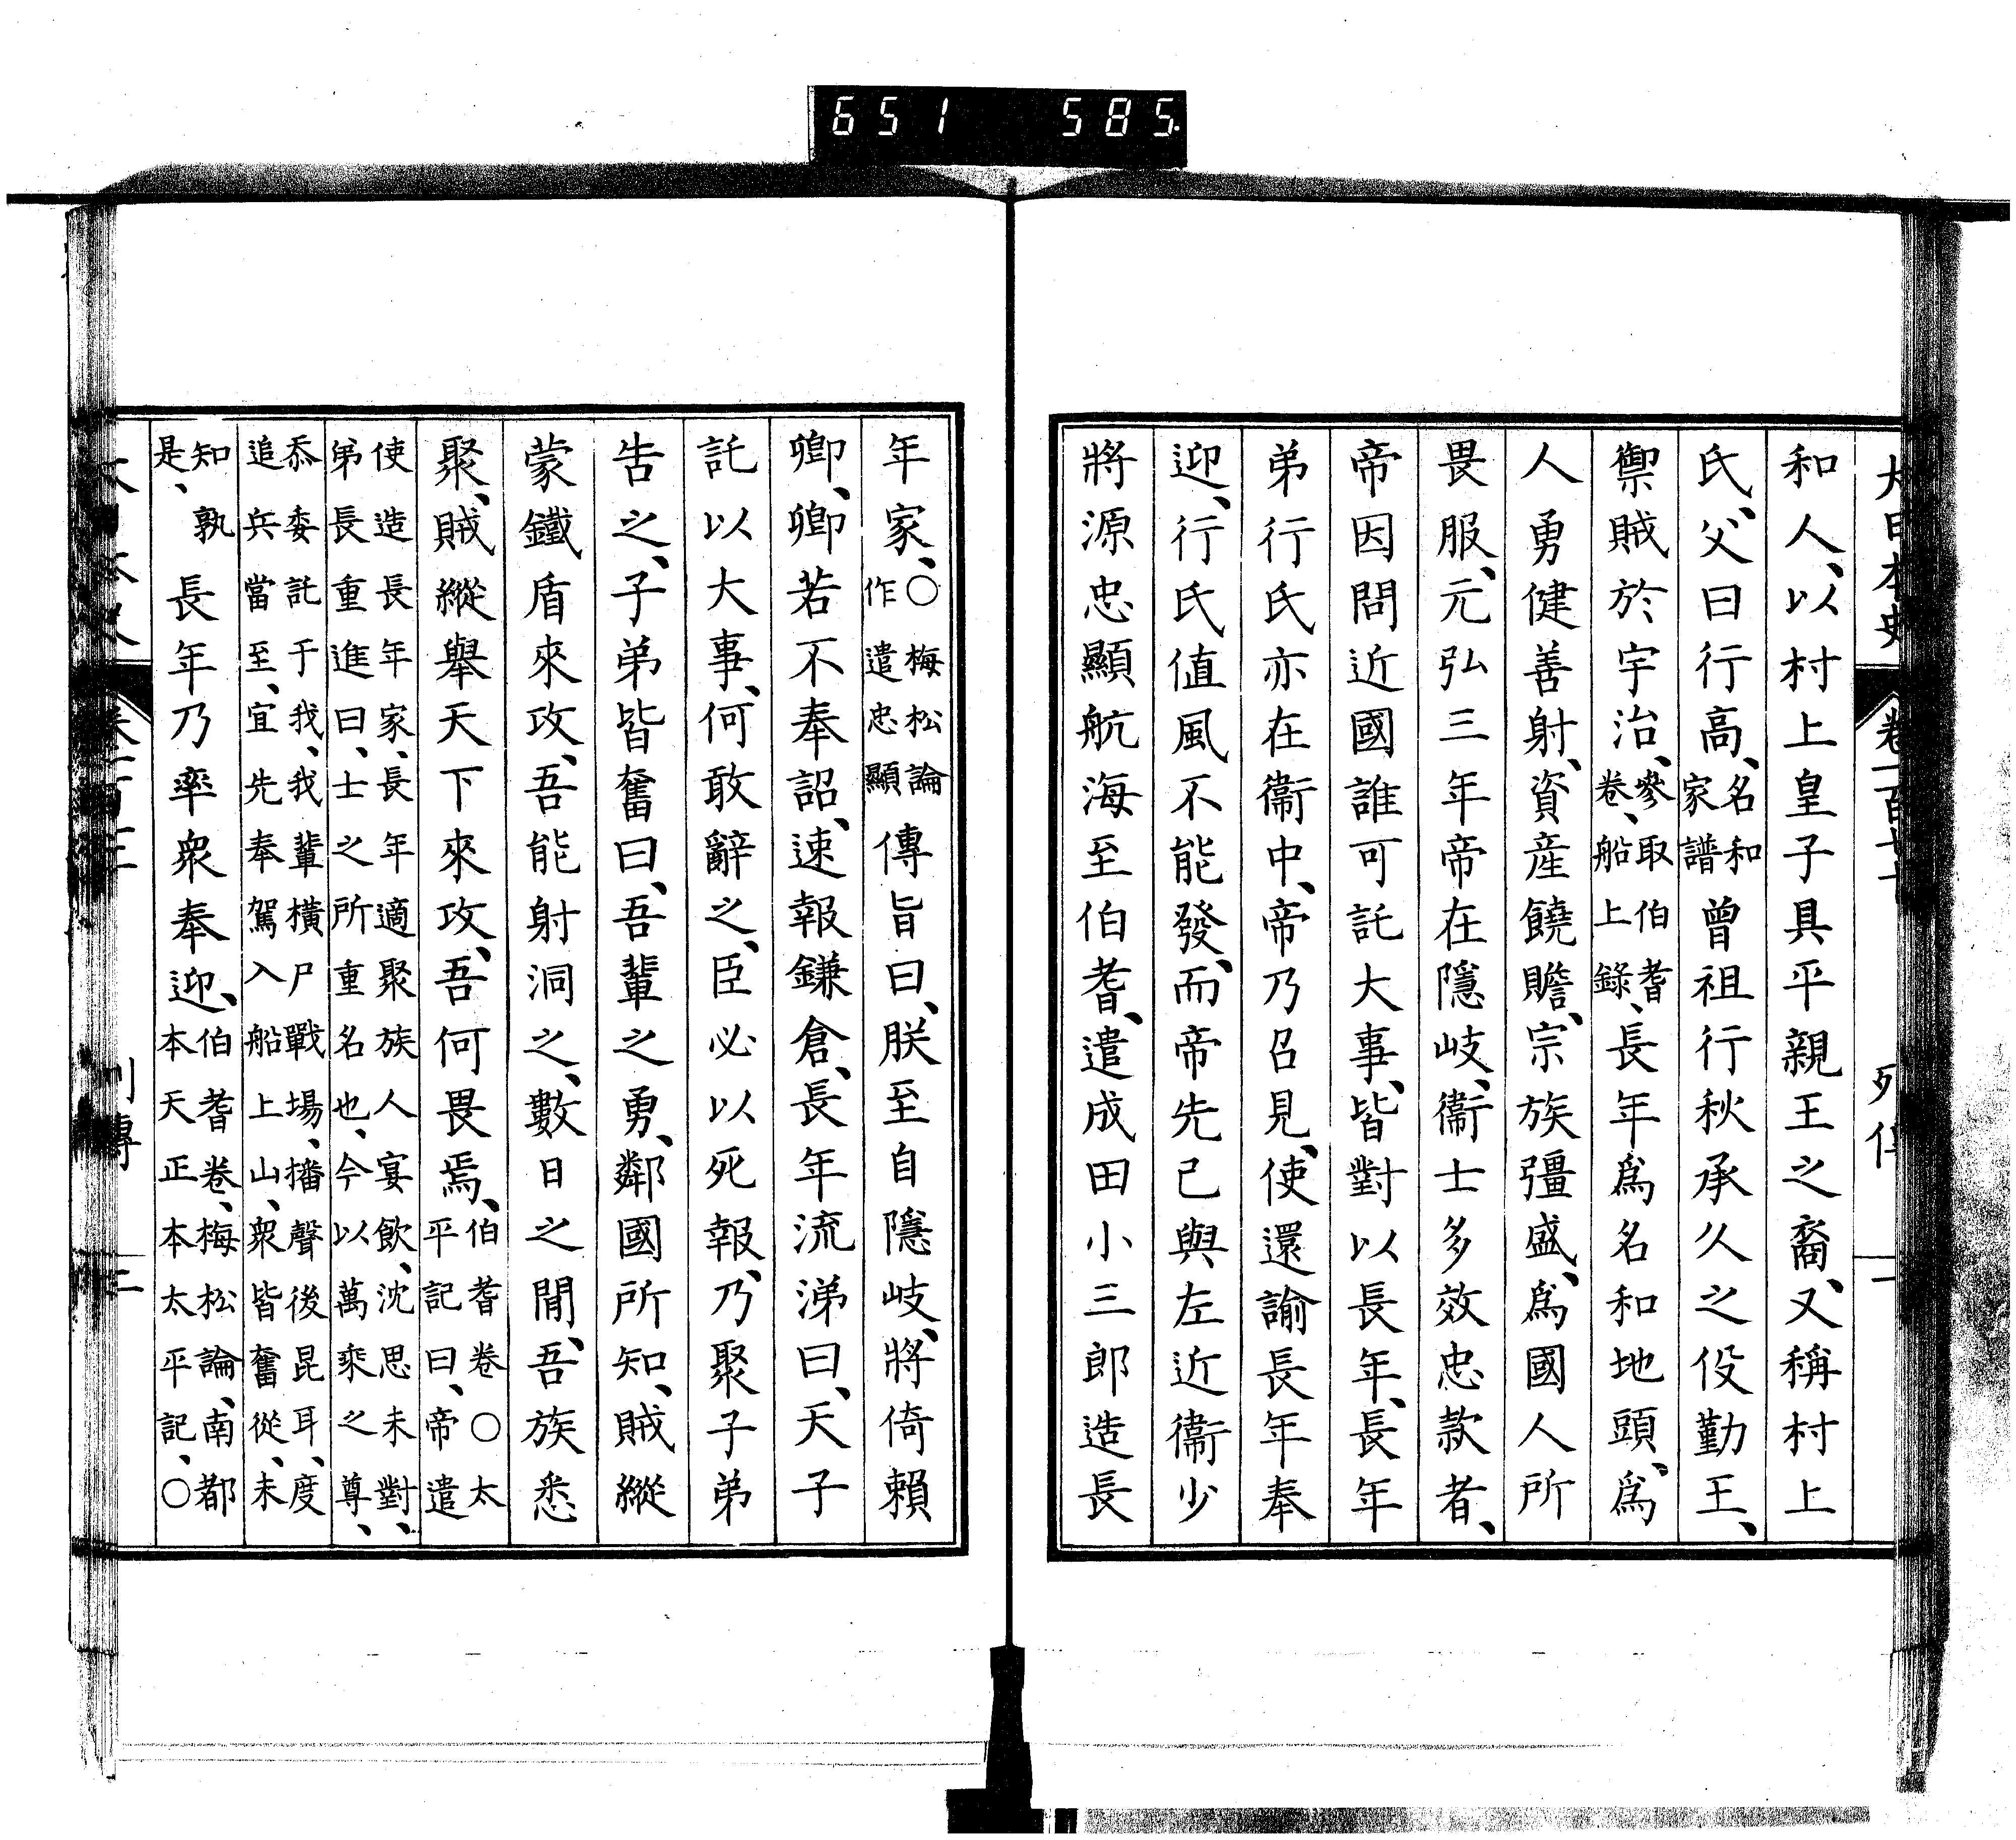 651 585.
大日本史 卷一百七十 列傳 二
和人、以村上皇子具平親王之裔、又稱村上
氏、父曰行高、名和家譜曾祖行秋承久之役勤王、
禦賊於宇治、參取伯耆卷、船上錄、長年爲名和地頭、爲
人勇健善射、資産饒贍、宗族彊盛、爲國人所
畏服、元弘三年帝在隱岐、衞士多效忠款者、
帝因問近國誰可託大事、皆對以長年、長年
弟行氏亦在衞中、帝乃召見、使還諭長年奉
迎、行氏値風不能發、而帝先已與左近衞少
將源忠顯航海至伯耆、遣成田小三郎造長
年家、○梅松論作遣忠顯傳旨曰、朕至自隱岐、將倚賴
卿、卿若不奉詔、速報鎌倉、長年流涕曰、天子
託以大事、何敢辭之、臣必以死報、乃聚子弟
告之、子弟皆奮曰、吾輩之勇、鄰國所知、賊縱
蒙鐵盾來攻、吾能射洞之、數日之閒、吾族悉
聚、賊縱舉天下來攻、吾何畏焉、伯耆卷○太平記曰、帝遣
使造長年家、長年適聚族人宴飲、沈思未對、
弟長重進曰、士之所重名也、今以萬乘之尊、
忝委託于我、我輩橫尸戰場、播聲後昆耳、度
追兵當至、宜先奉駕入船上山、衆皆奮從、未
知孰是、長年乃率衆奉迎、伯耆卷、梅松論、南都本天正本太平記、○
列傳 三